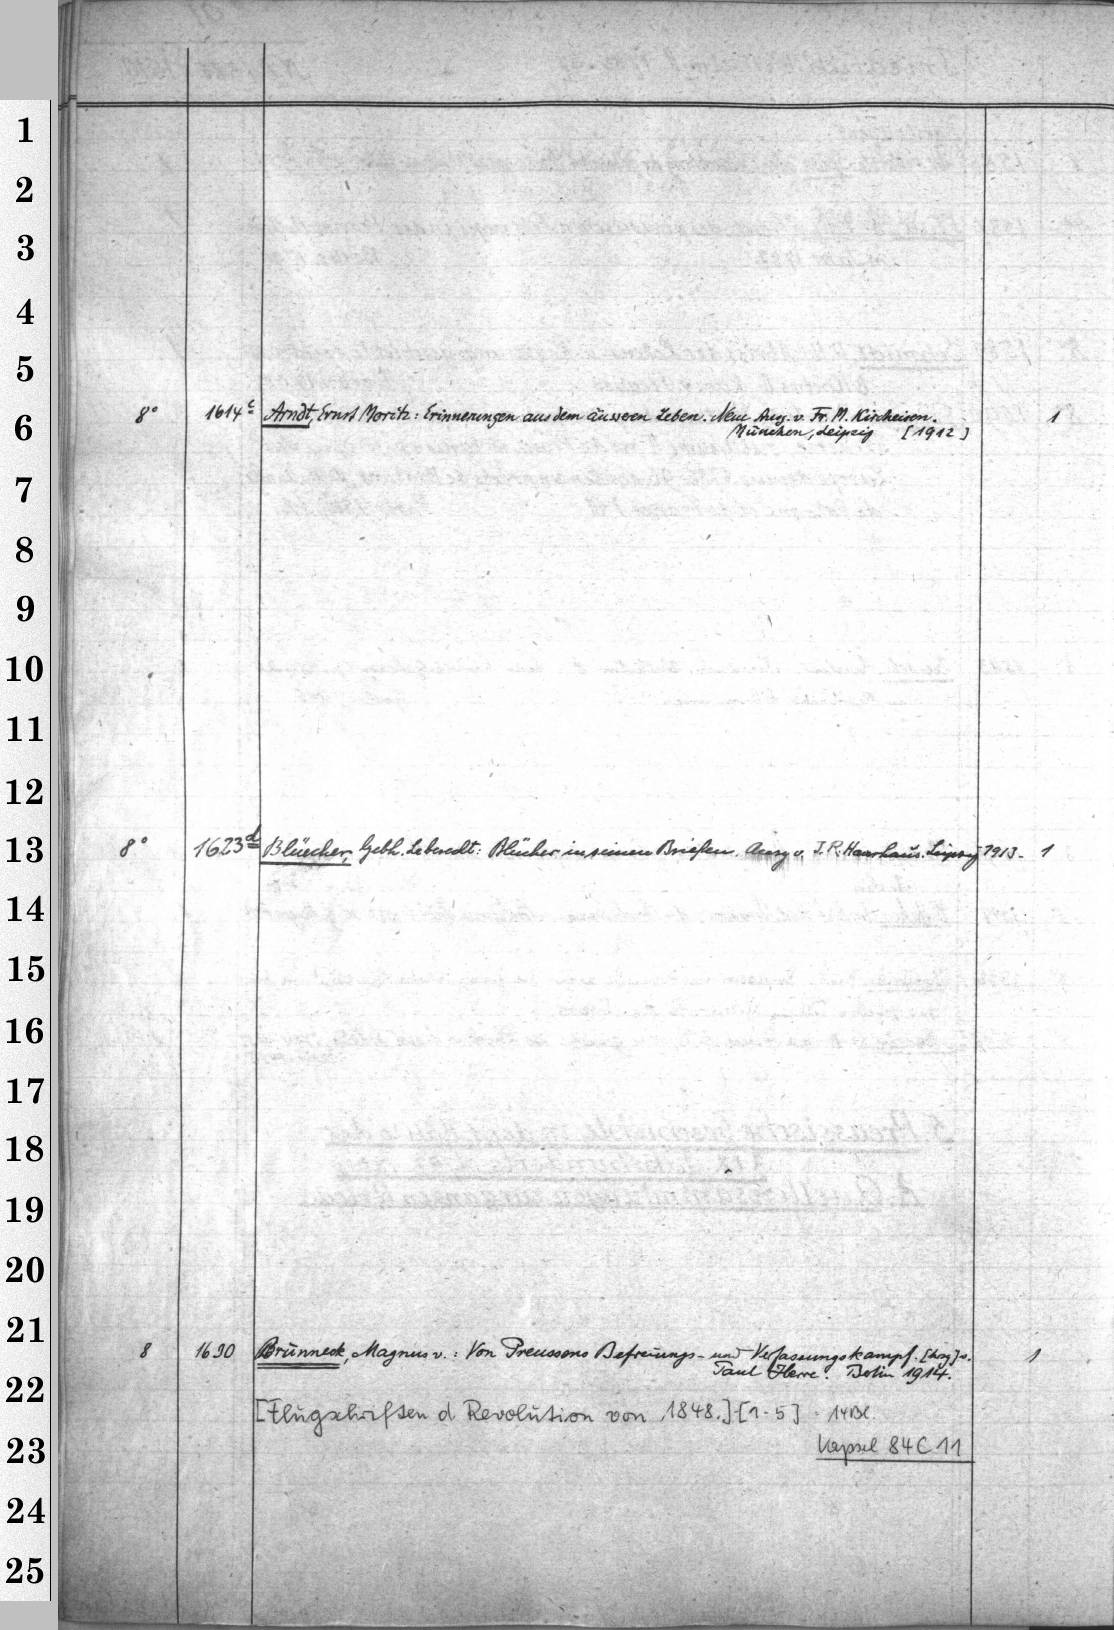 1
2
3
4
5
6
7
8
9
10
11
12
13
14
15
16
17
18
19
20
21
22
23
24
25
8° 1614 c Arndt, Ernst Moritz: Erinnerungen aus dem äusseren Leben. Neue Ausg. v. Fr. M. Kircheisen. 1
München, Leipzig [1912]
8° 1623 d Blücher, Gebh. Leberecht: Blücher in seinen Briefen. Ausg v. J. R. Haarhaus. Leipzig 1913. 1
8 1630 Brünneck, Magnus v.: Von Preussens Befreiungs- und Verfassungskampf. [hrsg] v. 1
Paul Herre. Berlin 1914.
[Flugschriften d Revolution von 1848.] [1-5] 14 Bl.
Kapsel 84 C 11